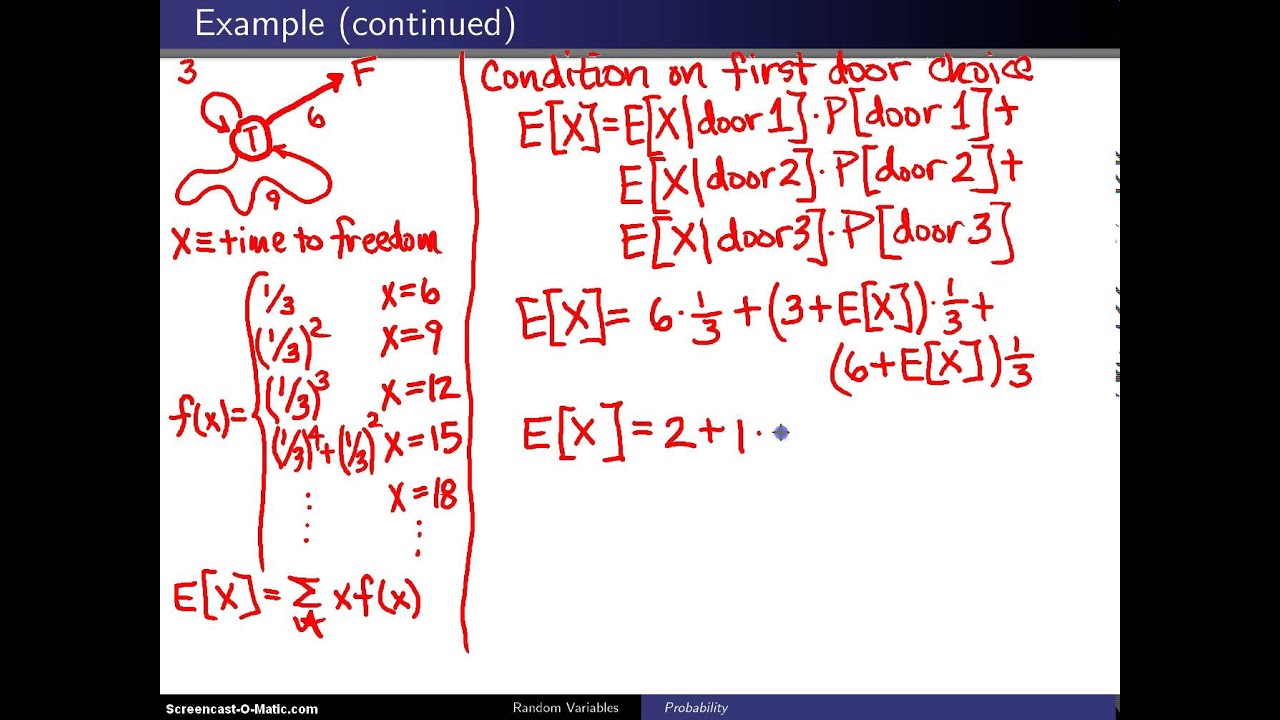 Example (continued)
3
F
6
T
9
X ≡ time to freedom
f(x) =
1/3 x=6
(1/3)^2 x=9
(1/3)^3 x=12
(1/3)^4 + (1/3)^2 x=15
⋮ x=18
⋮
E[X] = Σ x f(x)
Condition on first door choice
E[X] = E[X|door 1]·P[door 1] +
E[X|door 2]·P[door 2] +
E[X|door 3]·P[door 3]
E[X] = 6·1/3 + (3+E[X])·1/3 +
(6+E[X])1/3
E[X] = 2 + 1 ·
Screencast-O-Matic.com
Random Variables
Probability